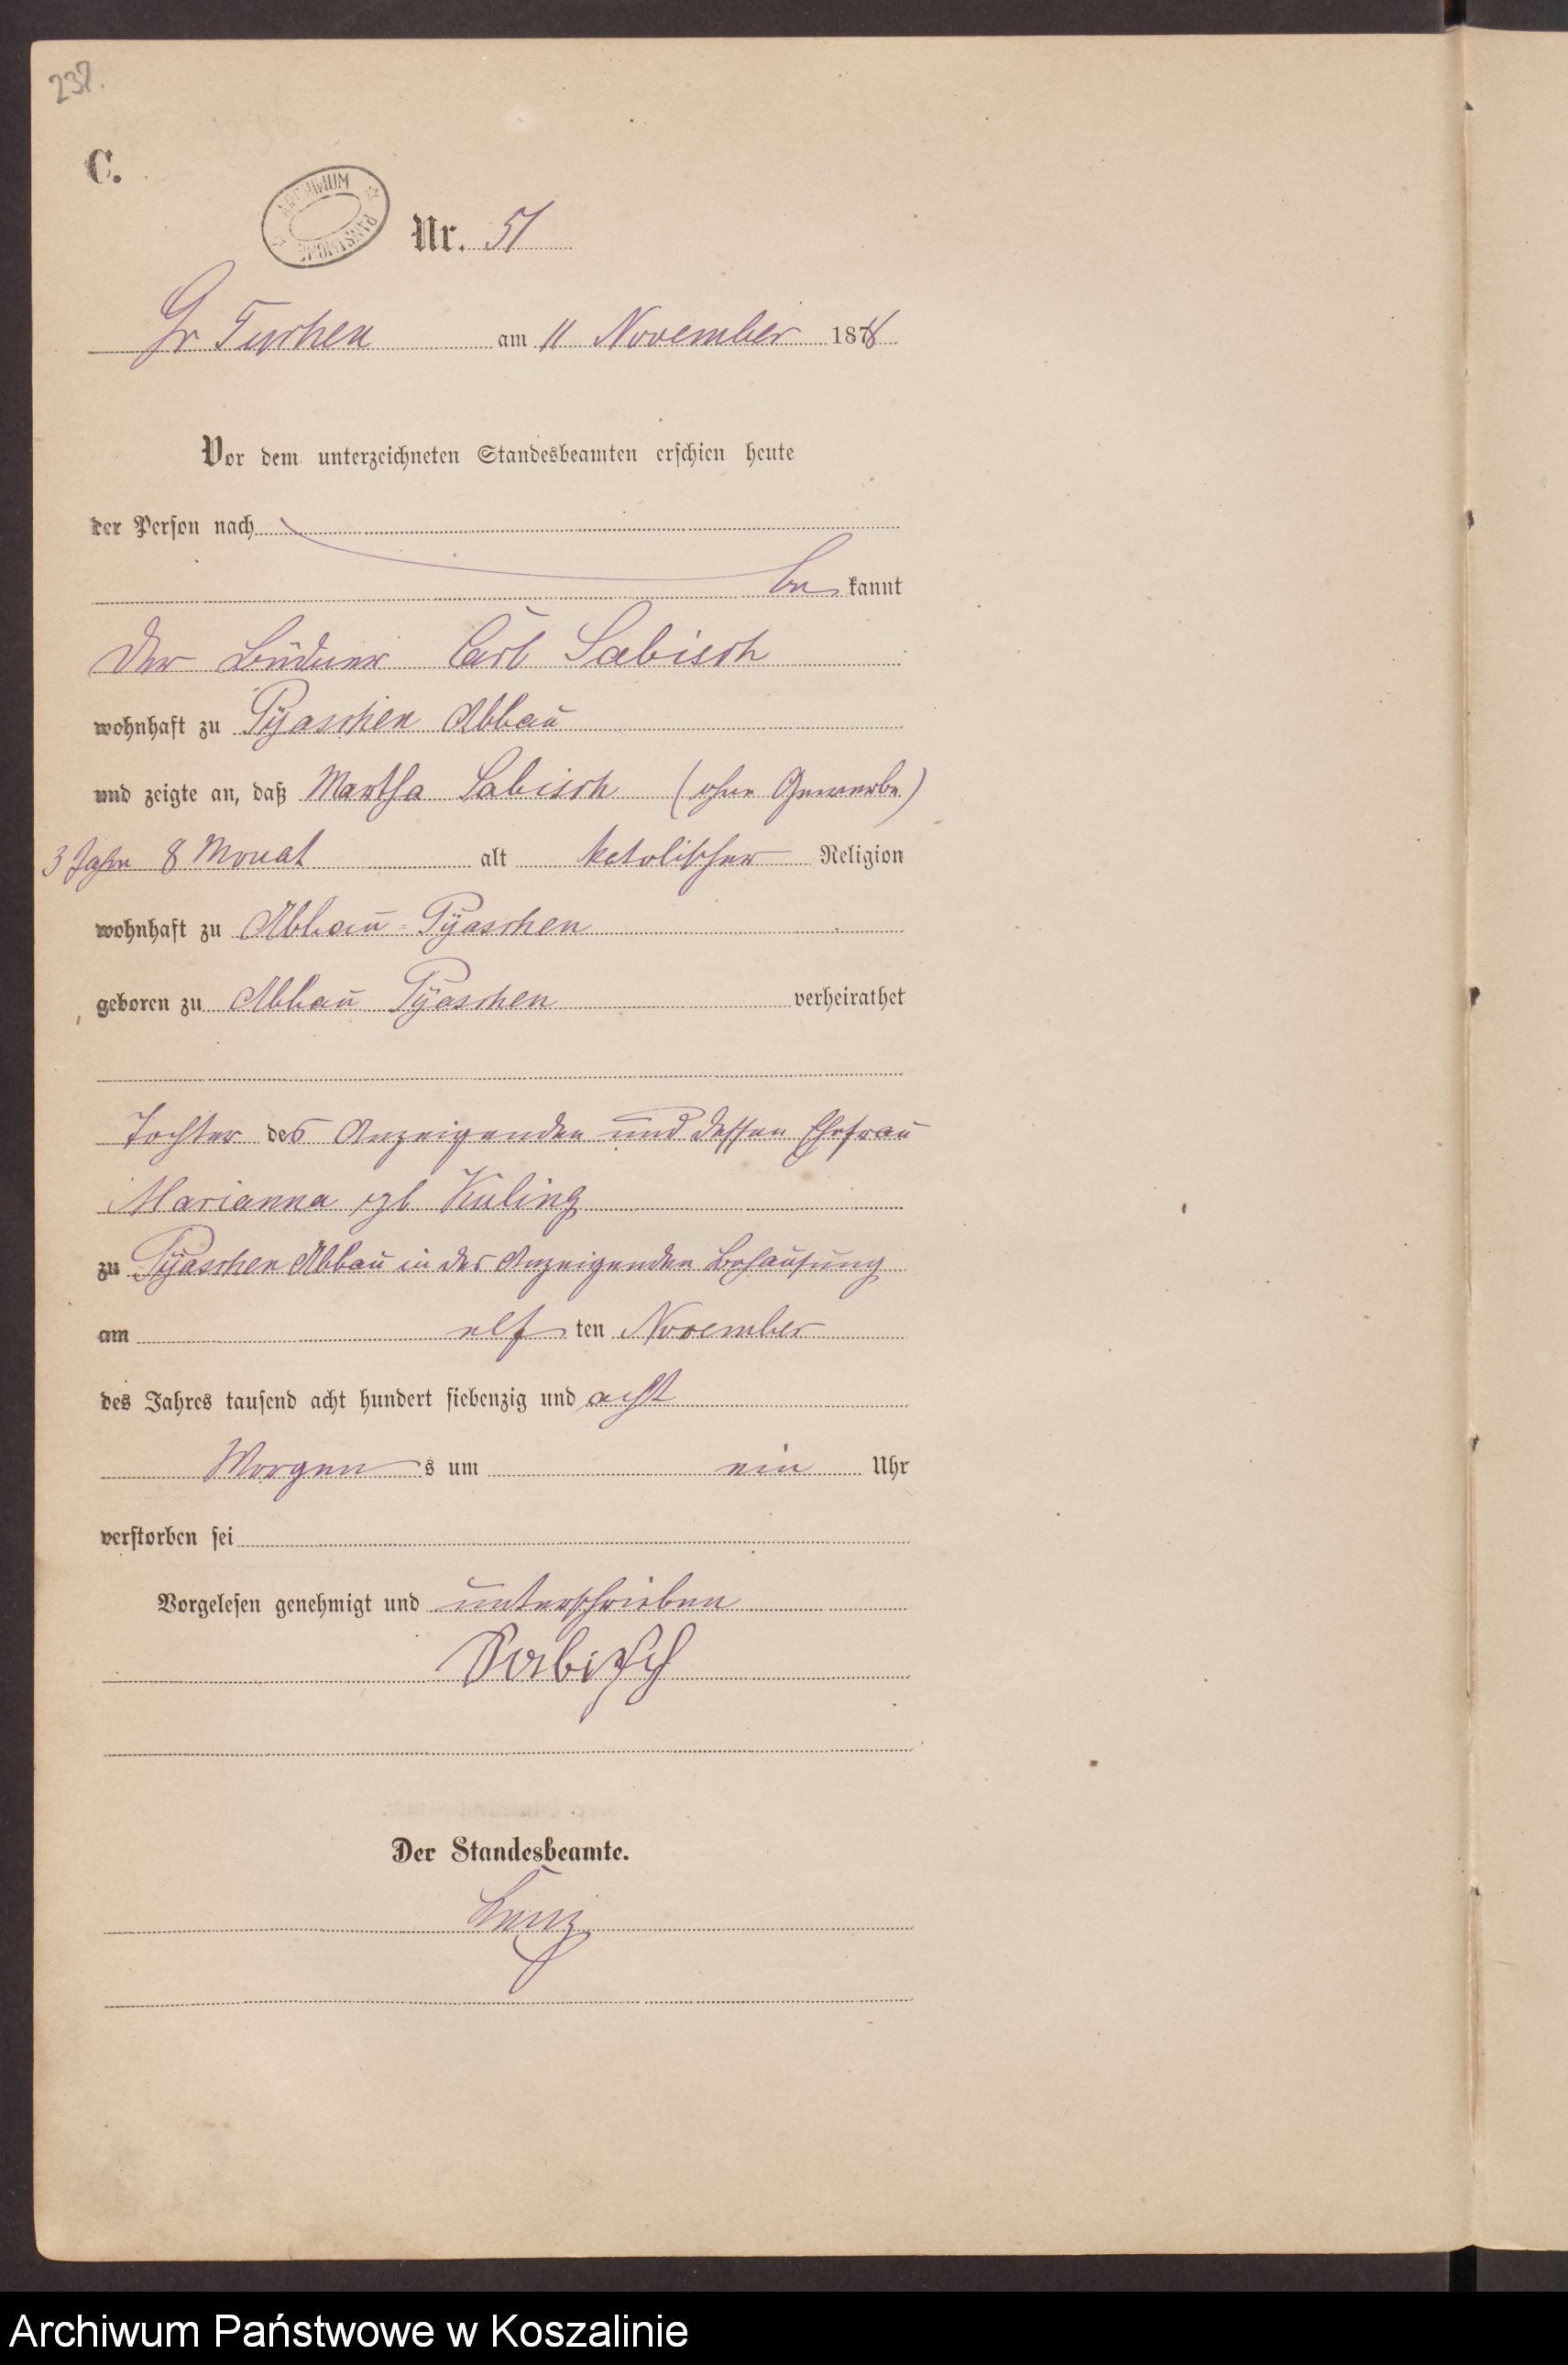 237.
C.
ARCHIWUM PAŃSTWOWE
Nr. 51
Gr Tuchen am 11 November 1878
Vor dem unterzeichneten Standesbeamten erschien heute
der Person nach
be kannt
Der Büdner Carl Sabisch
wohnhaft zu Pyaschen Abbau
und zeigte an, daß Martha Sabisch (ohne Gewerbe)
3 Jahr 8 Monat alt katolischer Religion
wohnhaft zu Abbau-Pyaschen
geboren zu Abbau Pyaschen verheirathet
Tochter des Anzeigenden und dessen Ehefrau
Marianna gb Kuling
zu Pyaschen Abbau in des Anzeigenden Behausung
am elf ten November
des Jahres tausend acht hundert siebenzig und acht
Morgen s um ein Uhr
verstorben sei
Vorgelesen genehmigt und unterschrieben
Sabisch
Der Standesbeamte.
Archiwum Państwowe w Koszalinie